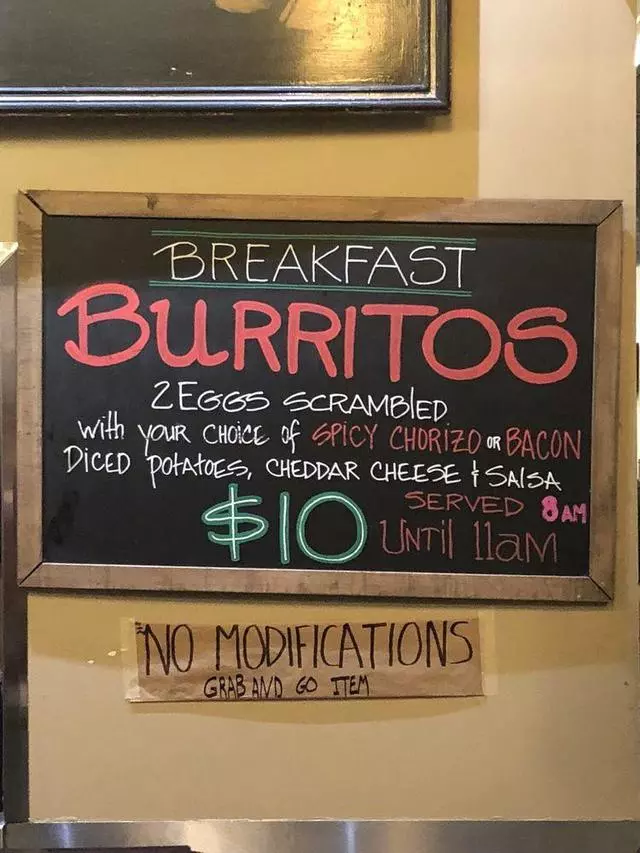 BREAKFAST
BURRITOS
2 EGGS SCRAMBlED
with your CHOICE of SPICY CHORIZO OR BACON
DICED POtAtOES, CHEDDAR CHEESE & SAlSA
$10
SERVED 8AM
UNTil 11aM
NO MODIFICATIONS
GRAB AND GO ITEM